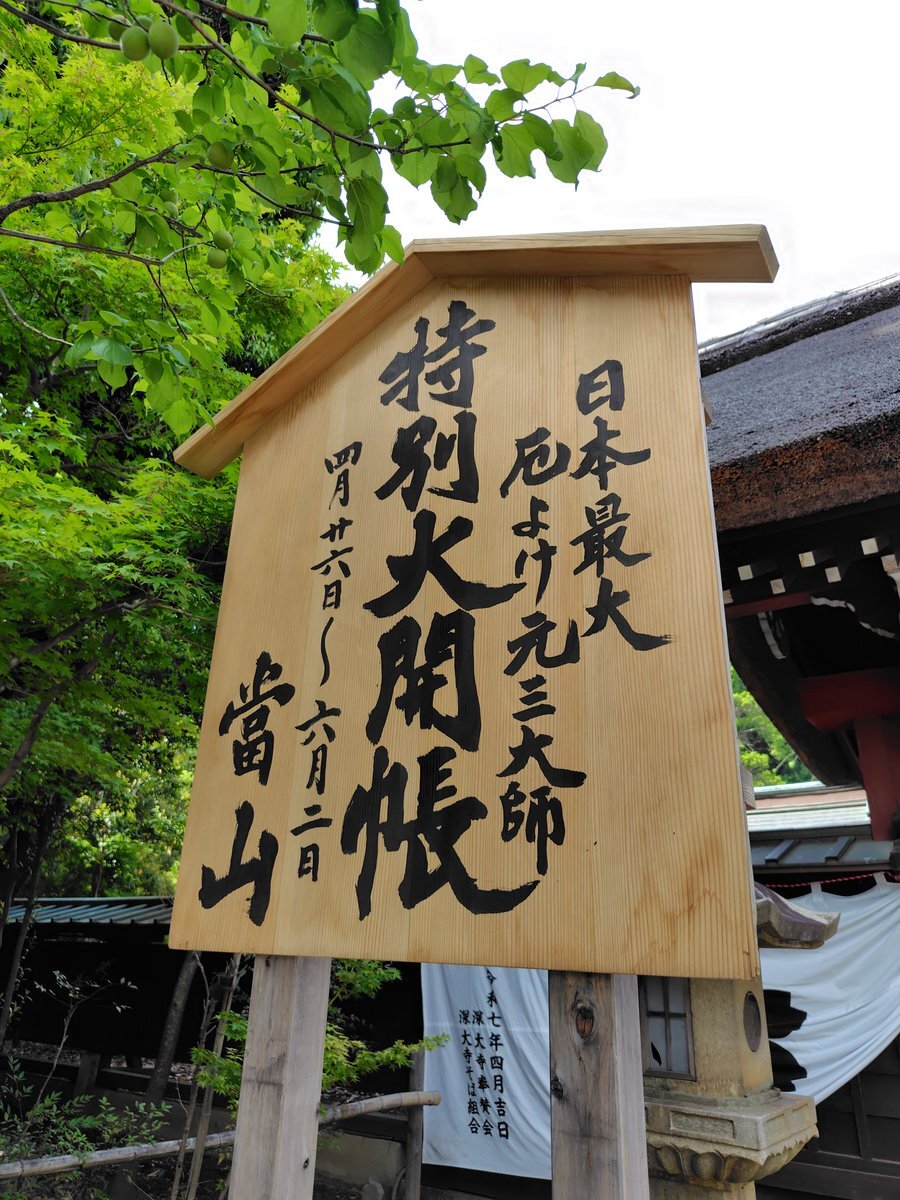 日本最大
厄よけ元三大師
特別大開帳
四月廿六日〜六月二日
當山
令和七年四月吉日
深大寺奉賛会
深大寺そば組合